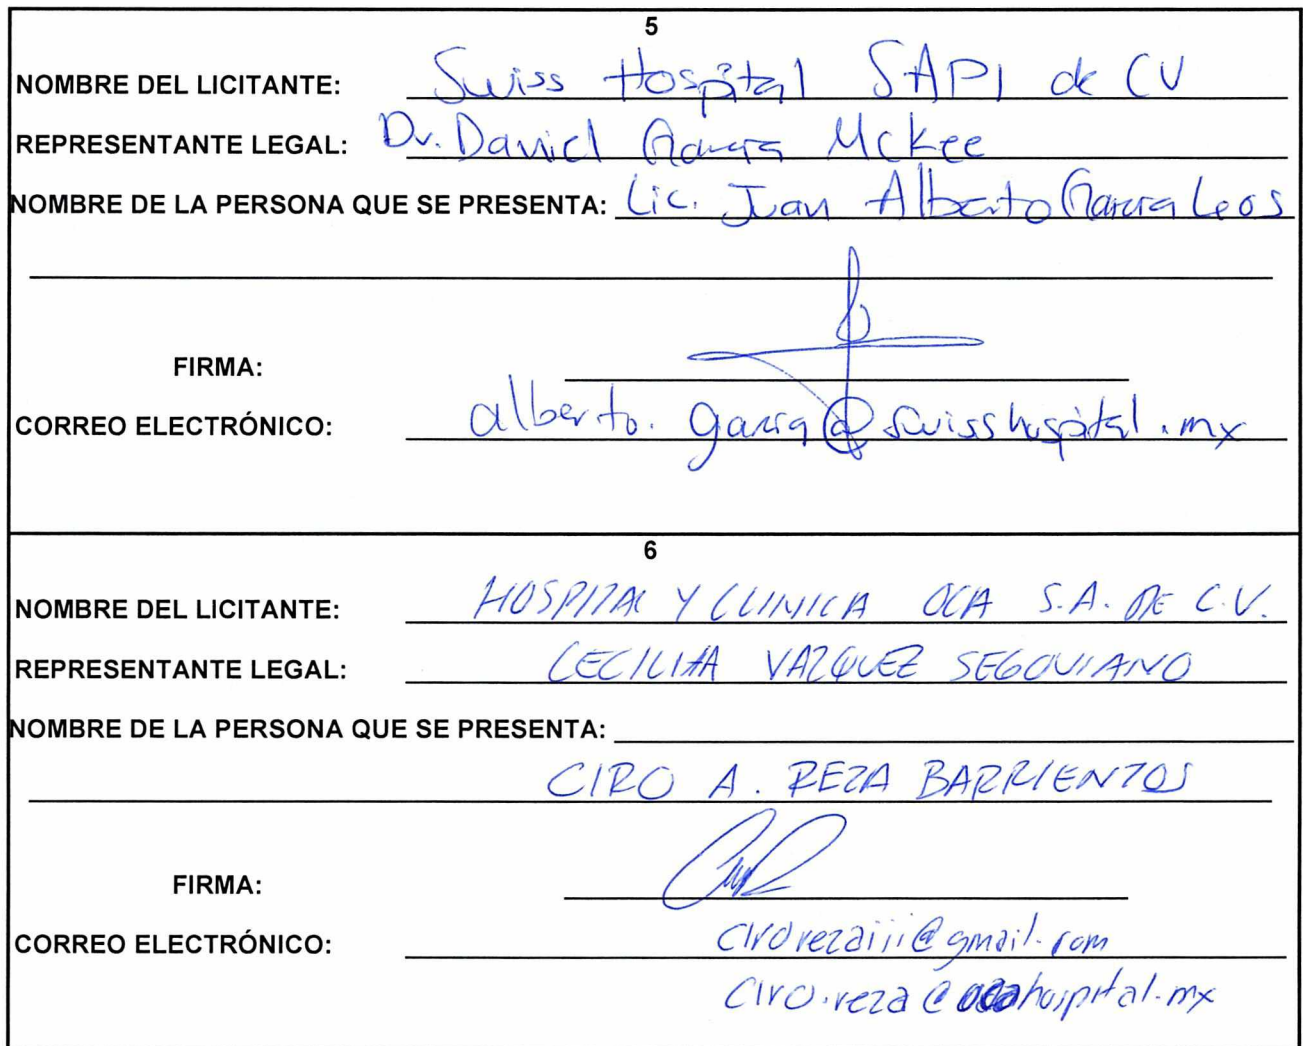 5
NOMBRE DEL LICITANTE: Swiss Hospital SAPI de CV
REPRESENTANTE LEGAL: Dr. Daniel Garcia McKee
NOMBRE DE LA PERSONA QUE SE PRESENTA: Lic. Juan Alberto Garcia Leos
FIRMA:
CORREO ELECTRÓNICO: alberto.garcia@swisshospital.mx
6
NOMBRE DEL LICITANTE: HOSPITAL Y CLINICA OCA S.A. DE C.V.
REPRESENTANTE LEGAL: CECILIA VAZQUEZ SEGOVIANO
NOMBRE DE LA PERSONA QUE SE PRESENTA:
CIRO A. REZA BARRIENTOS
FIRMA:
CORREO ELECTRÓNICO: cirorezaiii@gmail.com
ciro.reza@ocahospital.mx